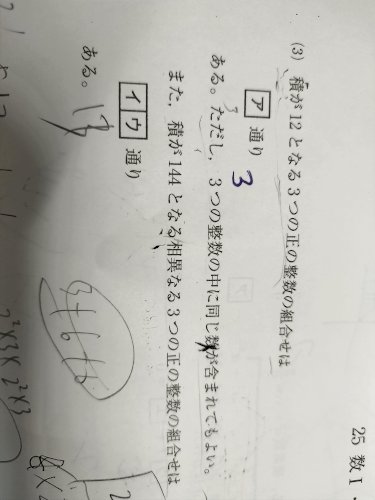 25 数I
(3) 積が12となる3つの正の整数の組合せは
ア 通り
ある。ただし，3つの整数の中に同じ数が含まれてもよい。
3
3
また，積が144となる相異なる3つの正の整数の組合せは
イウ 通り
ある。
18
2²×3×2²×3